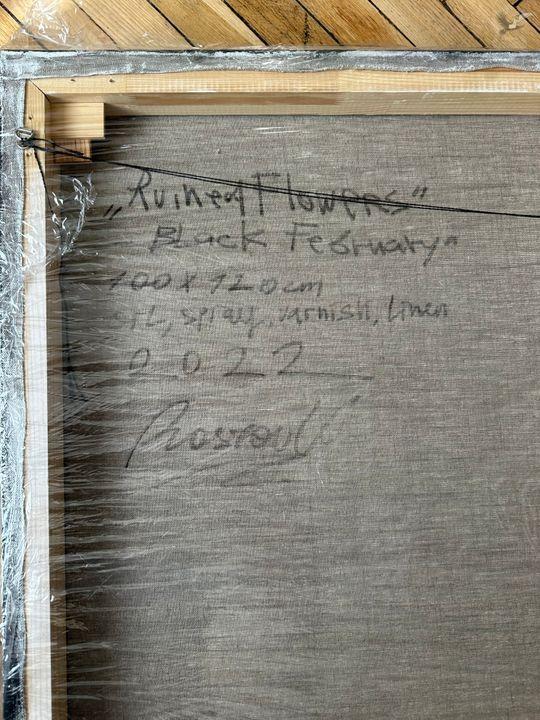 „Ruined Flowers"
Black February"
100 x 120 cm
oil, spray, varnish, linen
2022